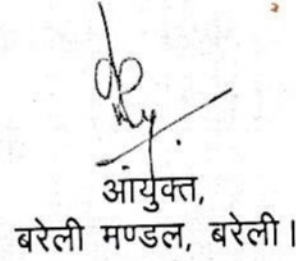 आयुक्त,
बरेली मण्डल, बरेली।